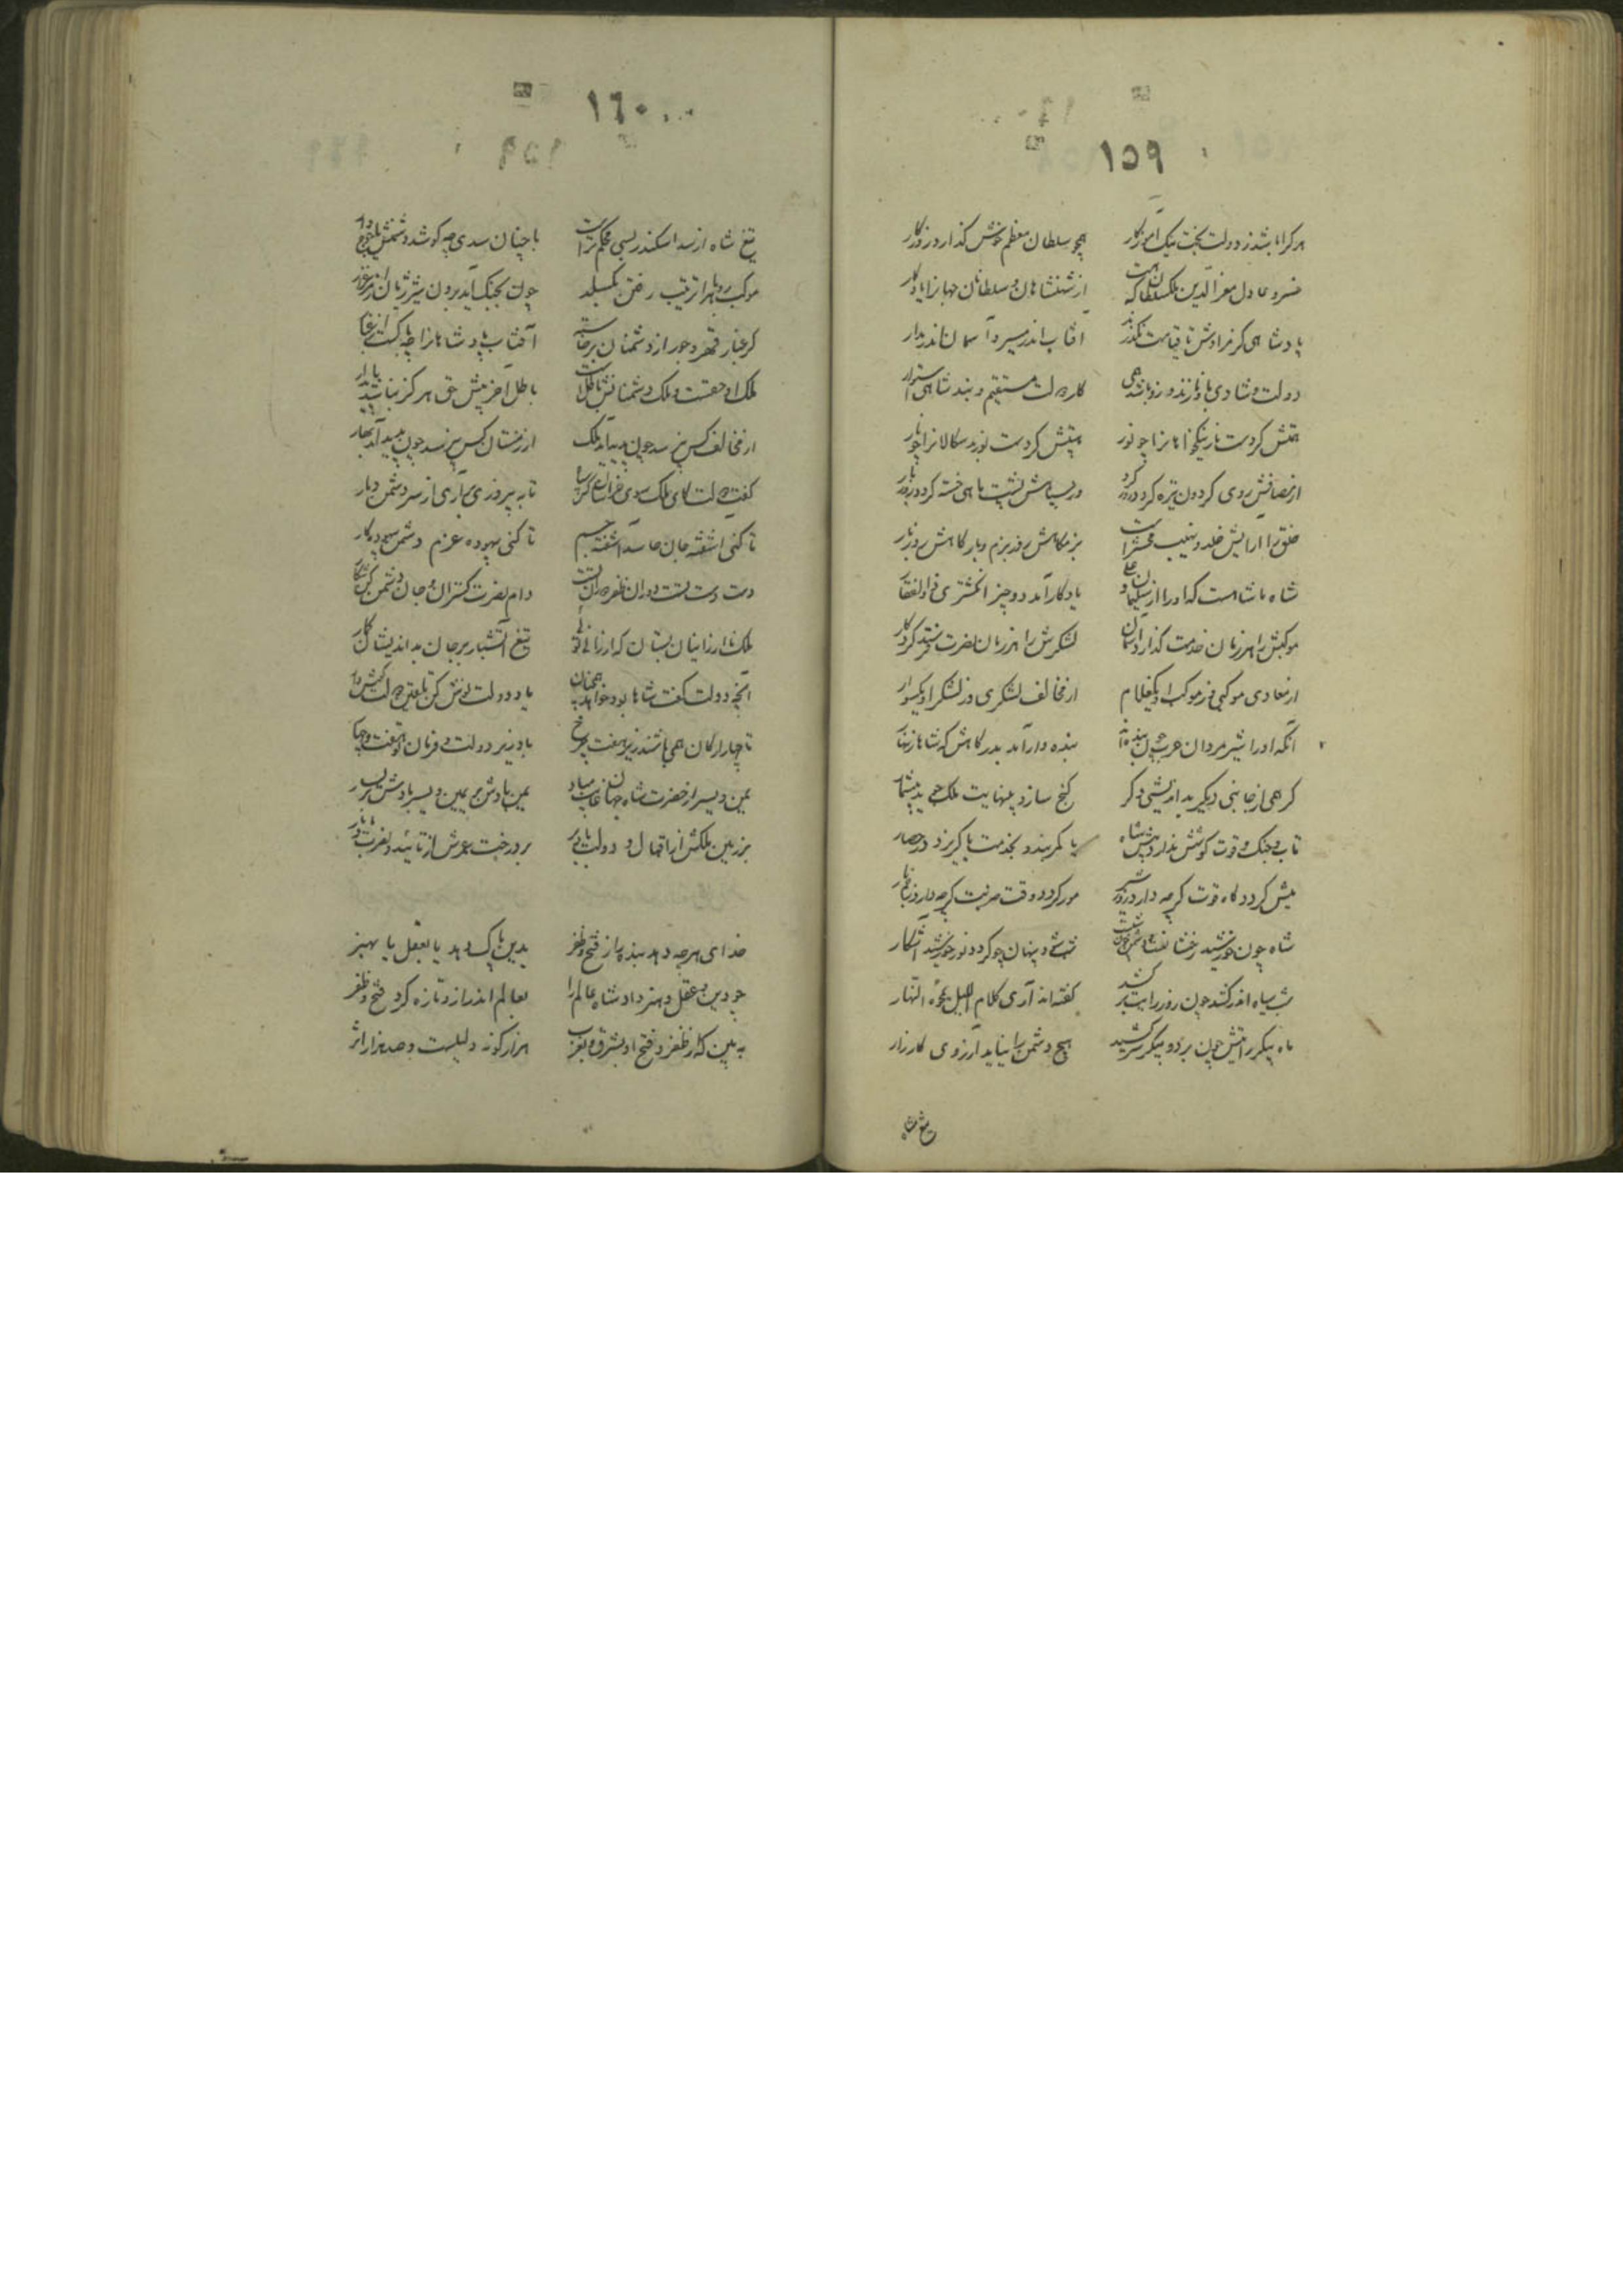 ١٥٩
هر کرا باشد ز دولت بخت نیک آموزکار همچو سلطان معظم خوش گذارد روزکار
خسرو عادل معز الدین ملکسلطان که هست از شهنشاهان و سلطانان جهانرا یادکار
پادشاهی کز مرادش تا قیامت نگذرد افتاب اندر مسیر و آسمان اندر مدار
دولت و شادی کار دولت مستقیم و بند شاهی استوار
کردست نیکخواهانرا چو نور کردست بدسکالانرا چو نار
روی کردون تیره کردد پشت ماهی خسته کردد
خلق را آرایش خلد و نهیب محشرست بزمکاهش روز بزم و بارکاهش روز بار
شاه ما شاهست که او را از سلیمان و علی یادکار آمد دو چیز انکشتری و ذوالفقار
موکبش را هر زمان خدمت گذارد آسمان لشکرش را هر زمان نصرت فرستد کردکار
از معادی موکبی وز موکب او یکغلام از مخالف لشکری وز لشکر او یکسوار
آنکه او را شیر مردان عرب چون بنده اند بنده وار آمد بدرکاهش که شاها زینهار
کر همی از جانبی دیکر بد اندیشی دکر کنج سازد بینهایت ملک بیشمار
تاب جنک و قوت کوشش ندارد پیش شاه یا کمر بندد بخدمت یا کریزد در حصار
میش کردد کاه قوت کرچه دارد زور شیر مور کردد وقت ضربت کرچه دارد زخم مار
شاه چون خورشید رخشانست شب شود پنهان چو کردد نور خورشید آشکار
شب سیاه اندر کشد چون روز رایت برکشد گفته اند آری کلام اللیل یمحوه النهار
ماه پیکر رایتش چون بر دو پیکر سر کشید هیچ دشمن را نیاید آرزوی کارزار
تیغ شاه
١٦٠
تیغ شاه از سد اسکندر بسی محکمترست با چنان سدی چه کوشد دشمنش
موکب روباه را ترتیب رفتن بکسلد چون بجنک آید برون شیر ژیان از مرغزار
کر غبار قهر و جور از دشمنان برخاسته آفتاب پادشاهانرا چه باکست از غبار
ملک او حقست و ملک دشمنانش باطلست باطل آخر پیش حق هرکز نباشد پایدار
از مخالف کس نپرسد چون پدید آید ملک از زمستان کس نپرسد چون پدید آید بهار
کفت دولت کای ملک سوی خراسان تا به پیروزی برآری از سر دشمن دمار
تا کنی آشفته جان حاسد آشفته جسم تا کنی بیهوده عزم دشمن بیهوده کار
دست دست تست دوران ظفر دام نصرت کستران و جان دشمن کن شکار
ملک را ارزانیان بستان که ارزانی تؤی تیغ آتشبار بر جان بد اندیشان کمار
آنچه دولت کفت شاها بود خواهد همچنان یاد دولت نوش کن
تا چهار ارکان همی باشند زیر هفت چرخ باد زیر دولت و فرمان تو هفت و چهار
یمن و یسر از حضرت شاه جهان غایب مباد یمن بادش بر یمین و یسر بادش بر یسار
بر زمین ملکش از اقبال و دولت باد بر درخت عمرش از تأیید و نصرت باد بار
خدای هرچه دهد بنده را ز فتح و ظفر بدین پاک دهد یا بعقل یا بهنر
چو دین و عقل و هنر داد شاه عالم را بعالم اندر ازو تازه کرد فتح و ظفر
ببین که از ظفر و فتح او بشرق و بغرب هزار کونه دلیلست و صد هزار اثر